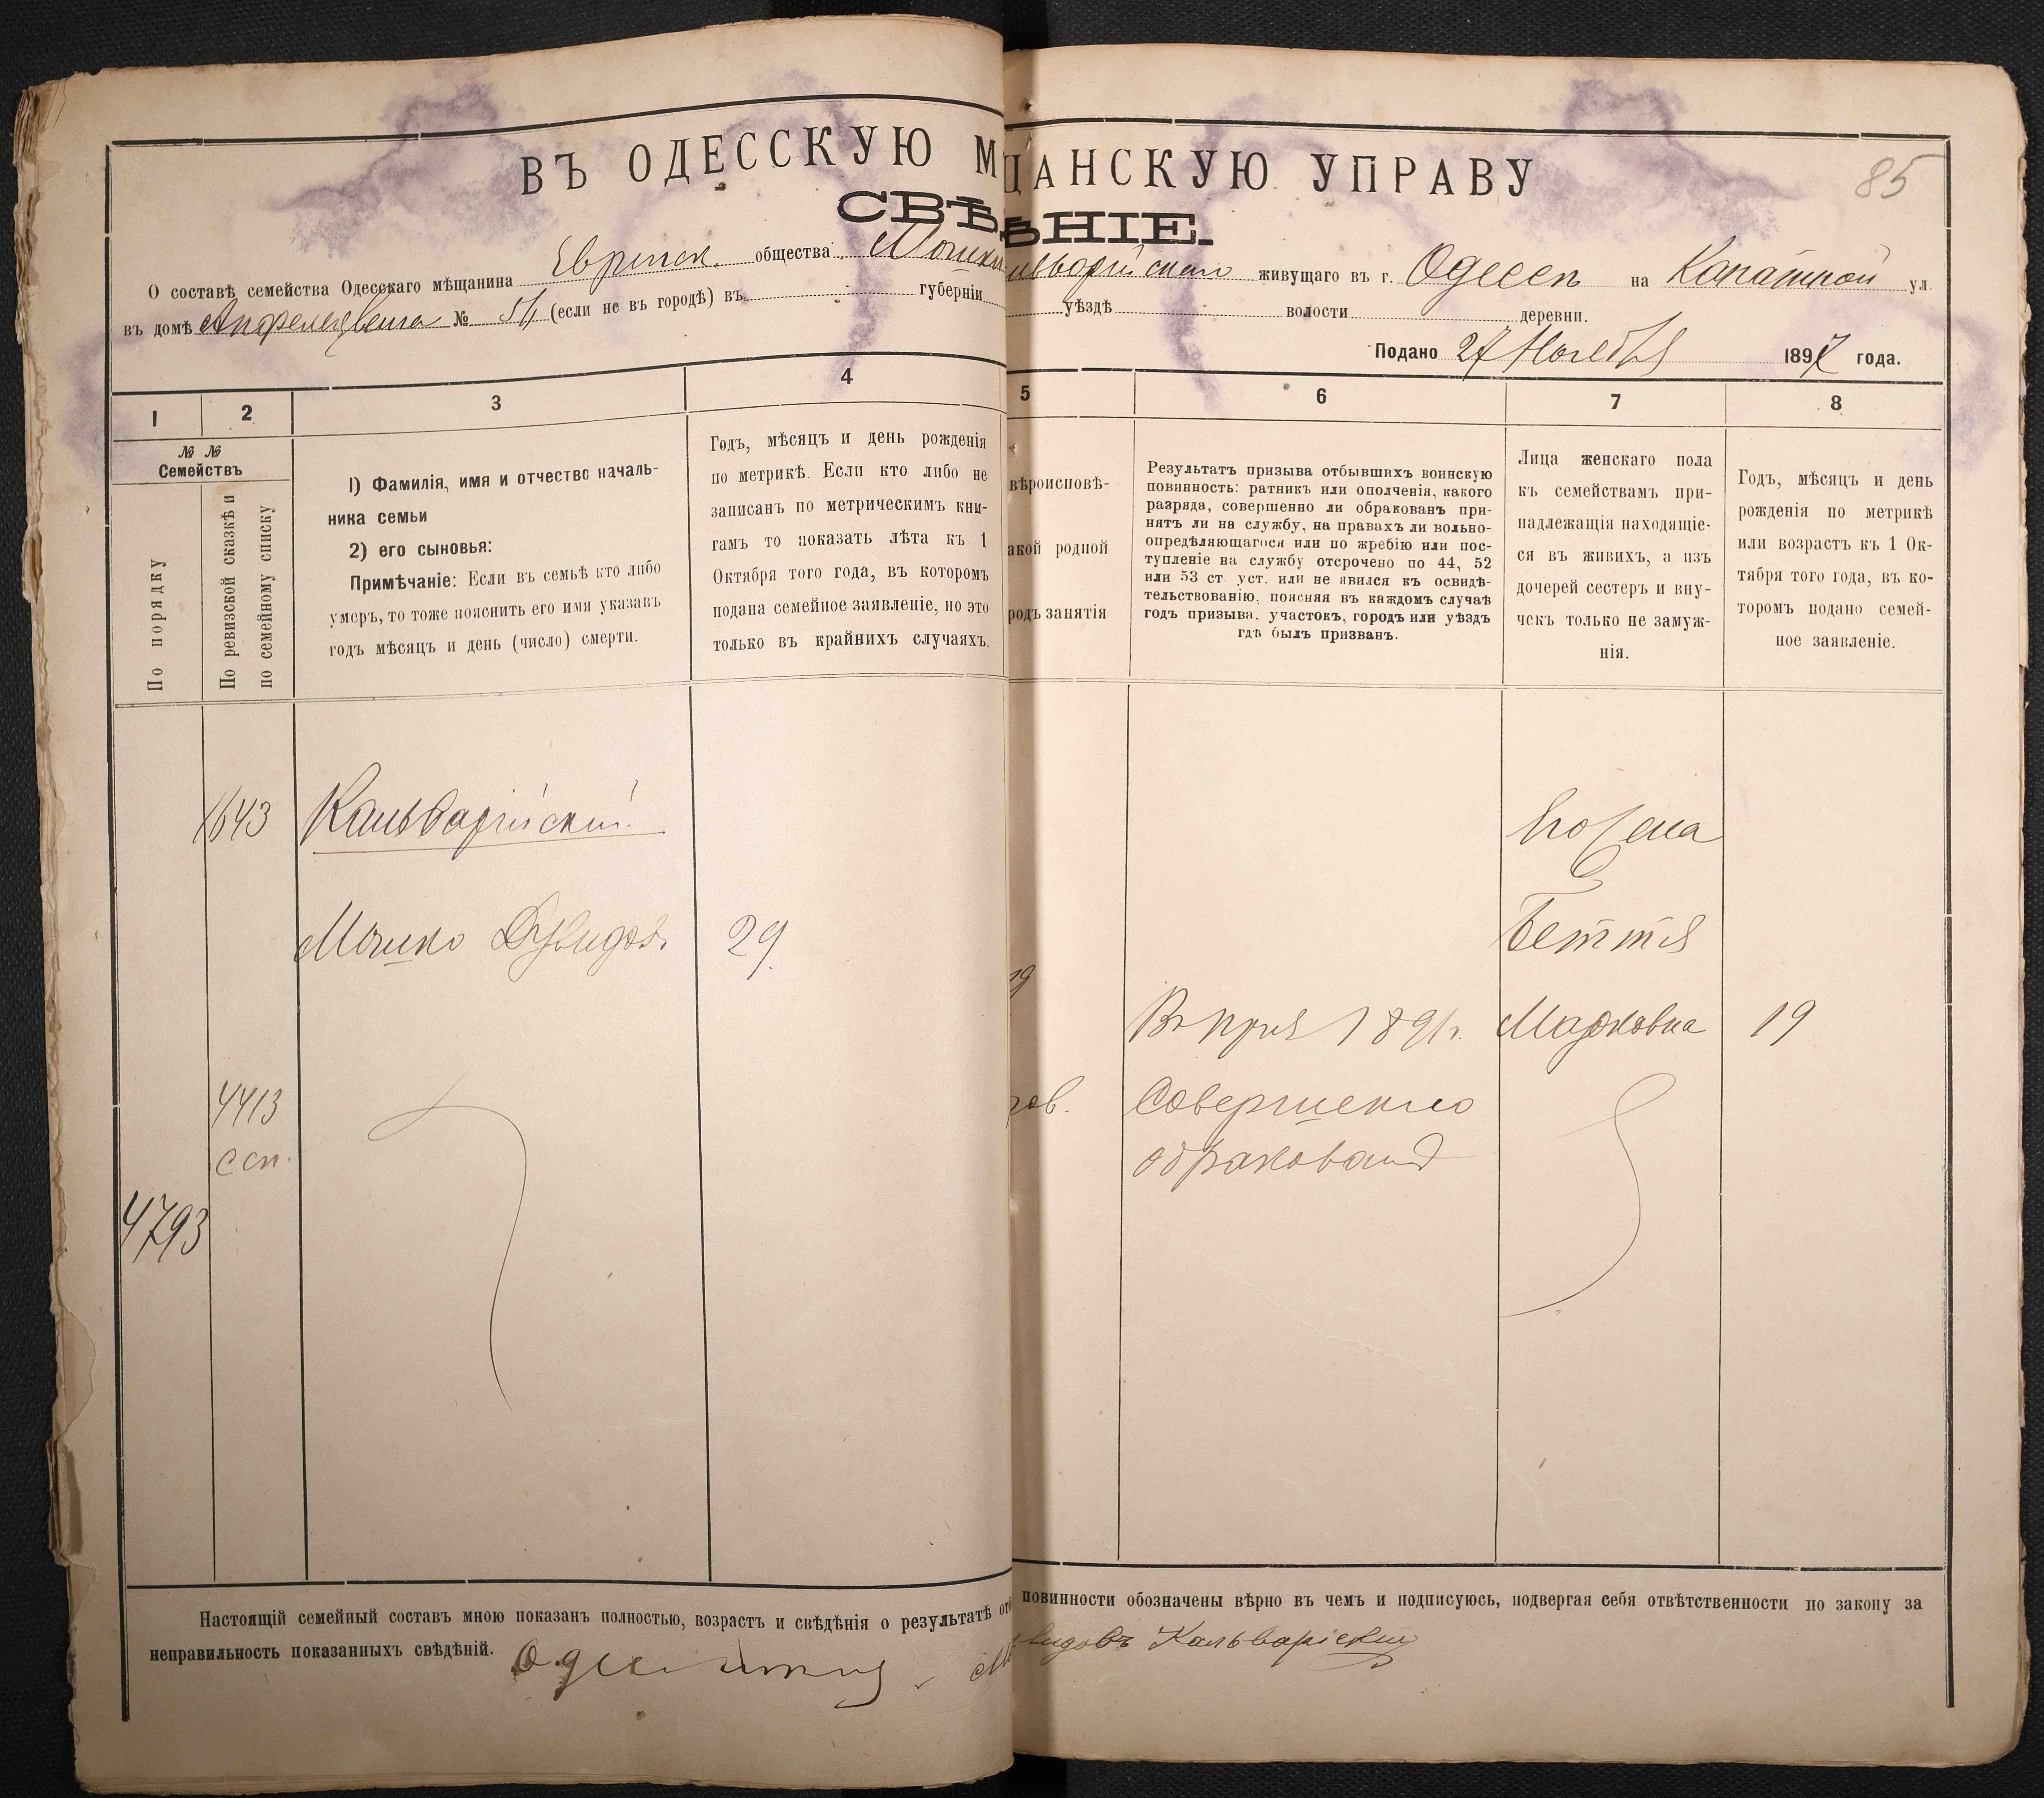 ВЪ ОДЕССКУЮ М ЩАНСКУЮ УПРАВУ
85
СВѢ ѢНІЕ.
О составѣ семейства Одесскаго мѣщанина Еврейск. общества Мошки льварійскаго живущаго въ г. Одессѣ на Канатной ул
въ домѣ № (если не въ городѣ) въ губерніи уѣздѣ волости деревни.
Подано 27 Ноября 1897 года.
1 2 3 4 5 6 7 8
№ № Семействъ
По порядку
По ревизской сказкѣ и по семейному списку
1) Фамилія, имя и отчество началь-
ника семьи
2) его сыновья:
Примѣчаніе: Если въ семьѣ кто либо
умеръ, то тоже пояснить его имя указавъ
годъ мѣсяцъ и день (число) смерти.
Годъ, мѣсяцъ и день рожденія
по метрикѣ. Если кто либо не
записанъ по метрическимъ кни-
гамъ то показать лѣта къ 1
Октября того года, въ которомъ
подана семейное заявленіе, но это
только въ крайнихъ случаяхъ.
вѣроисповѣ-
акой родной
родъ занятія
Результатъ призыва отбывшихъ воинскую
повинность: ратникъ или ополченія, какого
разряда, совершенно ли обракованъ при-
нятъ ли на службу, на правахъ ли вольно-
опредѣляющагося или по жребію или пос-
тупленіе на службу отсрочено по 44, 52
или 53 ст. уст. или не явился къ освидѣ-
тельствованію, поясняя въ каждомъ случаѣ
годъ призыва, участокъ, городъ или уѣздъ
гдѣ былъ призванъ.
Лица женскаго пола
къ семействамъ при-
надлежащія находящіе-
ся въ живихъ, а изъ
дочерей сестеръ и вну-
чекъ только не замуж-
нія.
Годъ, мѣсяцъ и день
рожденія по метрикѣ
или возрастъ къ 1 Ок-
тября того года, въ ко-
торомъ подано семей-
ное заявленіе.
1643 Кальварійскій
Мошко Дувидов. 29
Беття
Въ приз 1891г. Марковна 19
4413 Совершенно
ссп. обракованъ
4793
Настоящій семейный составъ мною показанъ полностью, возрастъ и свѣдѣнія о результатѣ от повинности обозначены вѣрно въ чемъ и подписуюсь, подвергая себя отвѣтственности по закону за
неправильность показанныхъ свѣдѣній. видовъ Кальварiскiй